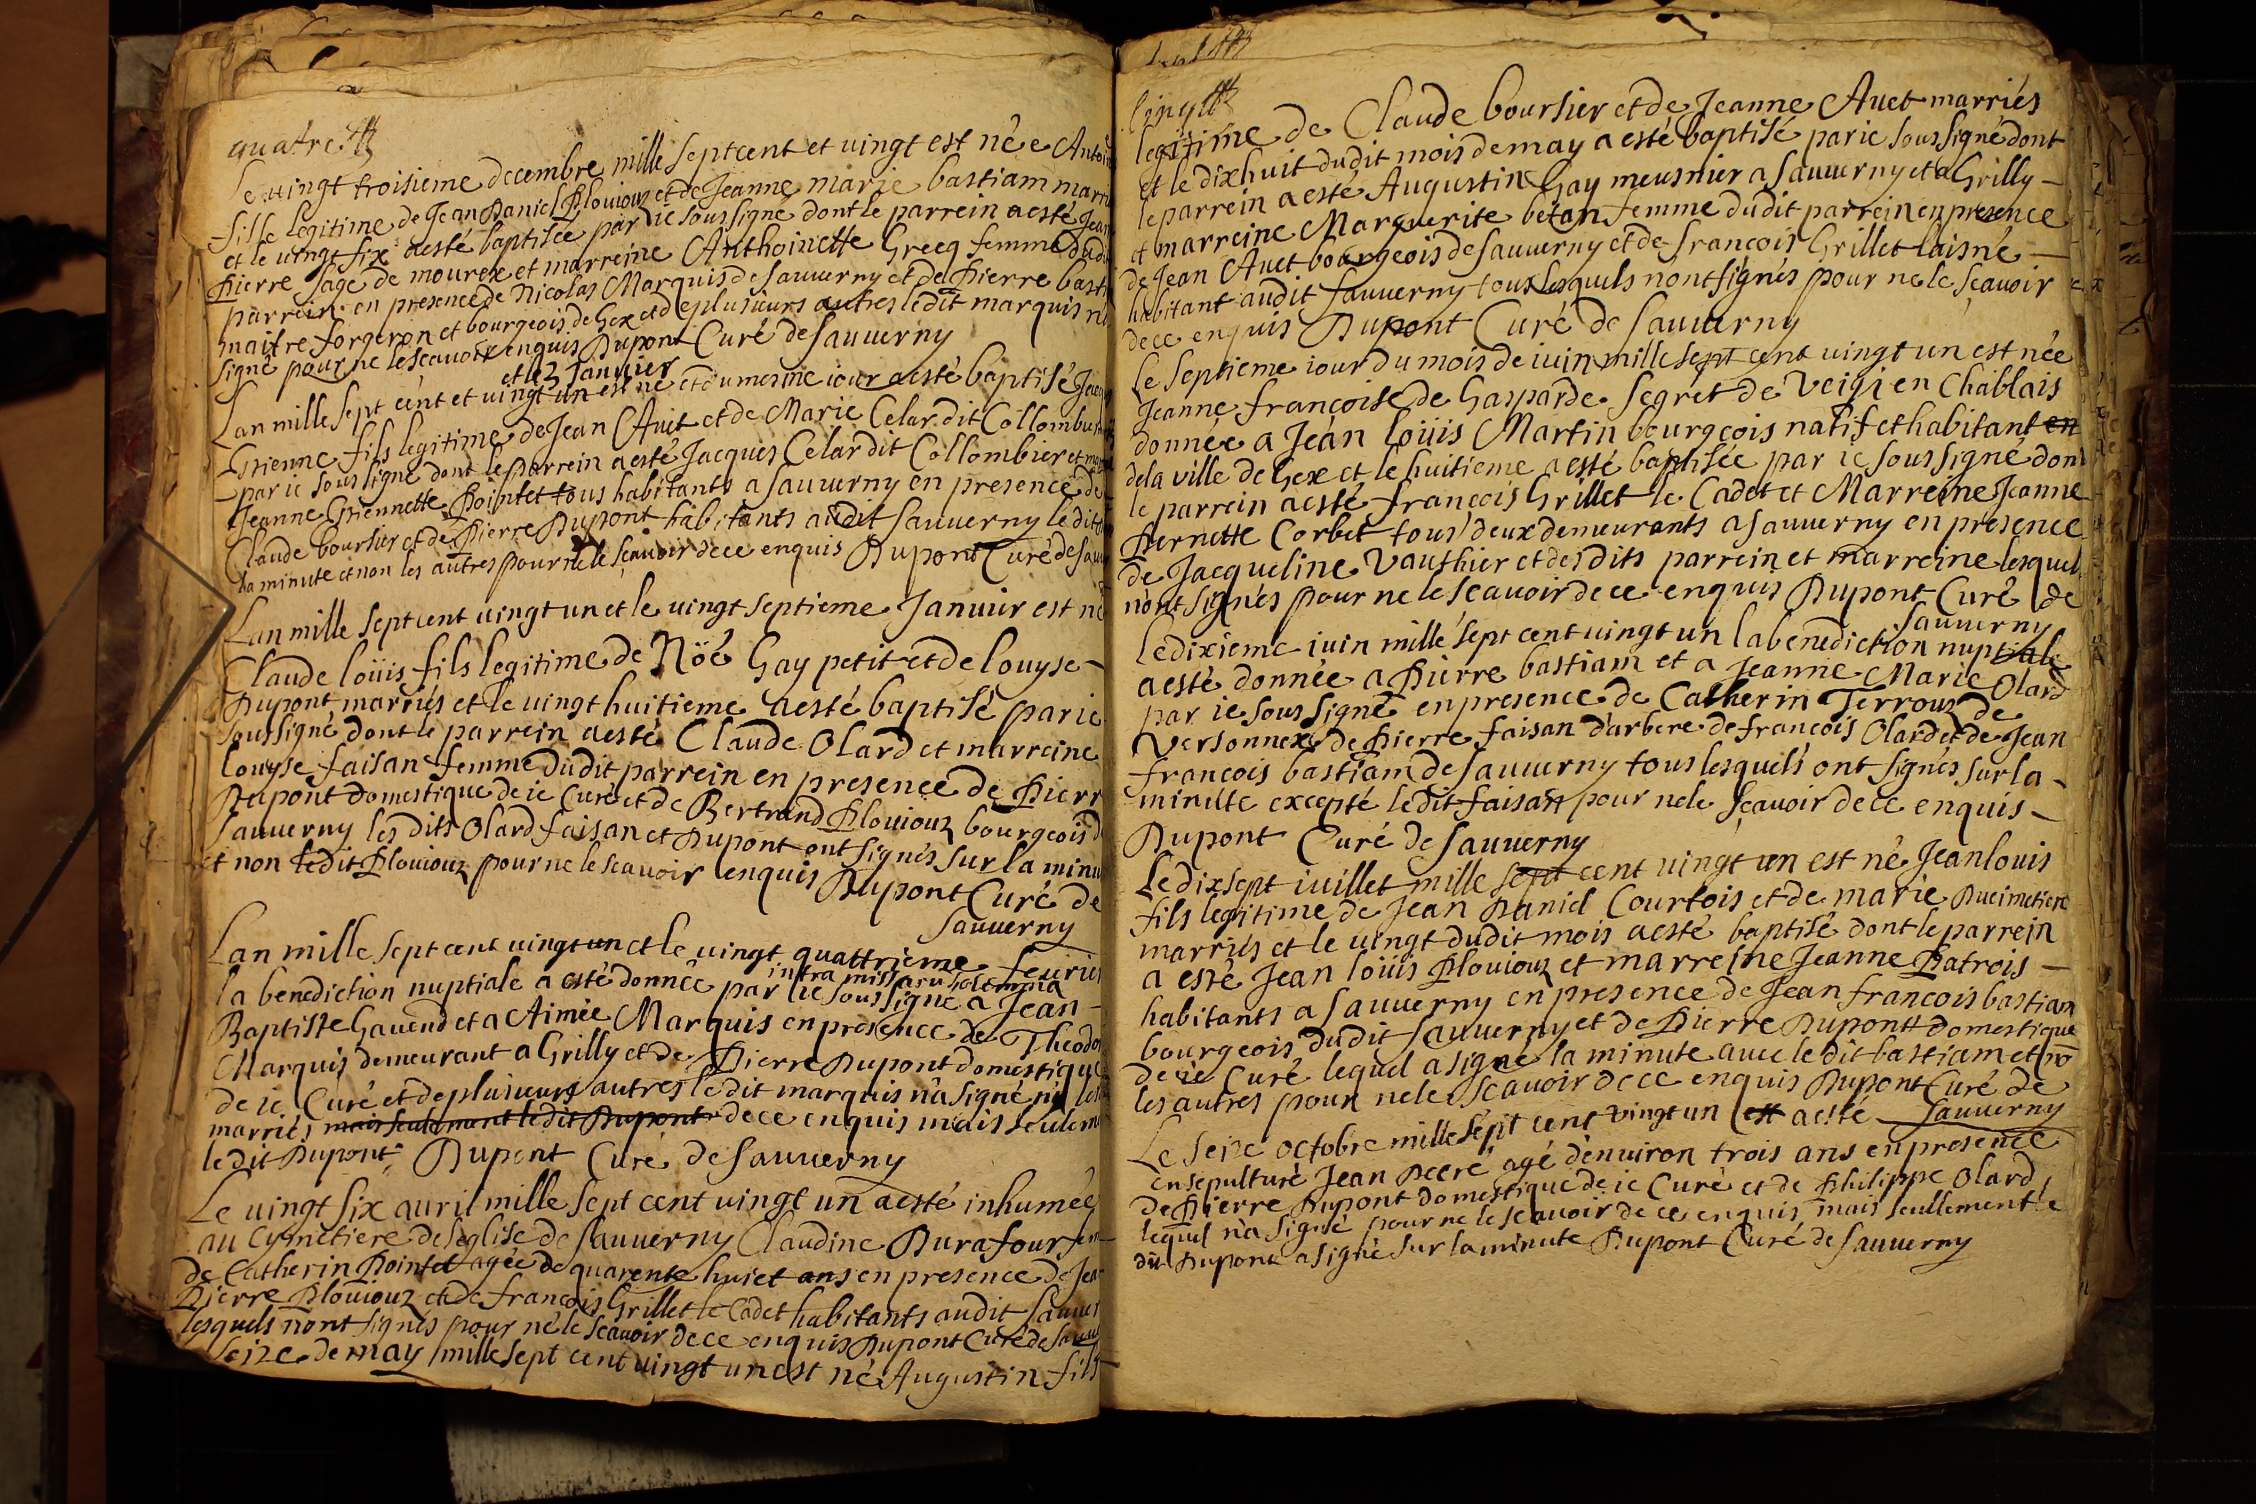 quatre
Le vingt troisieme decembre mille sept cent et vingt est née Antoin
fille legitime de Jean Daniel Plouiouz et de Jeanne marie bastiam marri
et le vingt six aesté baptisée par ie sous signé dont le parrein aesté Jean
Pierre sage de mourex et marreine Anthoinette Grecq femme dudit
parrein en presence de Nicolas Marquis de sauuerny et de Pierre basti
maitre forgeron et bourgeois de Gex et de plusieurs autres ledit marquis n
signé pour ne le scauoir enquis Dupont Curé de sauuerny
et le 3 Januier
Lan mille sept cent et vingt un est né et du mesme iour aesté baptisé Jacq
Etienne fils legitime de Jean Auet et de Marie Celar dit Collombier
par ie sous signé dont le parrein aesté Jacques Celar dit Collombier et mar
Jeanne Etiennette Pointet tous habitants a sauuerny en presence de
Claude boursier et de Pierre Dupont habitants audit sauuerny ledit
la minute et non les autres pour ne le scauoir de ce enquis Dupont Curé de sauu
Lan mille sept cent vingt un et le vingt septieme Januier est né
Claude loüis fils legitime de Nöé Gay petit et de louyse
Dupont marriés et le vingt huitieme aesté baptisé par ie
soussigné dont le parrein aesté Claude Olard et marreine
louyse faisan femme dudit parrein en presence de Pierr
Dupont domestique de ie Curé et de Bertrand Plouiouz bourgeois d
sauuerny les dits Olard faisan et Dupont ont signés sur la minu
et non ledit Plouiouz pour ne le scauoir enquis Dupont Curé de
sauuerny
Lan mille sept cent vingt un et le vingt quattrieme feurier
intra missarum solemnia
la benediction nuptiale a esté donnée par ie sous signé a Jean
Baptiste Gauend et a Aimée Marquis en presence de Theodo
Marquis demeurant a Grilly et de Pierre Dupont domestique
de ie Curé et de plusieurs autres ledit marquis n'a signé ny les
marriés mais seulement ledit Dupont de ce enquis mais seulem
le dit Dupont Dupont Curé de sauuerny
Le vingt six auril mille sept cent vingt un aesté inhumée
au Cymetiere de l'eglise de sauuerny Claudine Durafour fem
de Catherin Pointet agée de quarente huict ans en presence de Jean
Pierre Plouiouz et de francois Grillet le Cadet habitants audit sauuer
lesquels n'ont signés pour ne le scauoir de ce enquis Dupont Curé de sauu
seize de may mille sept cent vingt un est né Augustin fils
cinq
legitime de Claude boursier et de Jeanne Auet marriés
et le dixhuit dudit mois de may a esté baptisé par ie sous signé dont
le parrein a esté Augustin Gay meusnier a sauuerny et a Grilly
et marreine Marguerite bétan femme dudit parrein en presence
de Jean Auet bourgeois de sauuerny et de francois Grillet laisné
habitant audit sauuerny tous lesquels nont signés pour ne le scauoir
de ce enquis Dupont Curé de sauuerny
Le septieme iour du mois de iuin mille sept cent vingt un est née
Jeanne françoise de Gasparde segret de Veigi en Chablais
donnée a Jean loüis Martin bourgeois natif et habitant en
de la ville de Gex et le huitieme aesté baptisée par ie sous signé dont
le parrein aesté francois Grillet le Cadet et Marreine Jeanne
Pernette Corbet tous deux demeurants a sauuerny en presence
de Jacqueline Vauthier et desdits parrein et marreine lesquel
nont signés pour ne le scauoir de ce enquis Dupont Curé de
sauuerny
Le dixieme iuin mille sept cent vingt un la benediction nuptiale
aesté donnée a Pierre bastiam et a Jeanne Marie Olard
par ie sous signé en presence de Catherin Terroux de
Versonnex de Pierre faisan d'arbere de francois Olard et de Jean
francois bastiam de sauuerny tous lesquels ont signés sur la
minute excepté ledit faisan pour ne le scauoir de ce enquis
Dupont Curé de sauuerny
Le dixsept iuillet mille sept cent vingt un est né Jean louis
fils legitime de Jean Daniel Courtois et de marie Ducimetiere
marriés et le vingt dudit mois aesté baptisé dont le parrein
a esté Jean loüis Plouiouz et marreine Jeanne Patrois
habitants a sauuerny en presence de Jean francois bastiam
bourgeois dudit sauuerny et de Pierre Dupont domestique
de ie Curé lequel a signé la minute auec ledit bastiam et nō
les autres pour ne le scauoir de ce enquis Dupont Curé de
sauuerny
Le seize octobre mille sept cent vingt un est aesté
ensepulturé Jean Decré agé d'enuiron trois ans en presence
de Pierre Dupont domestique de ie Curé et de Philippe Olard
lequel n'a signé pour ne le scauoir de ce enquis mais seullement le
dit Dupont a signé sur la minute Dupont Curé de sauuerny